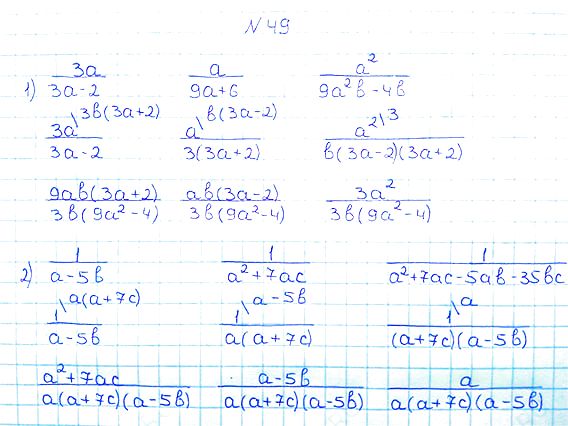 N49
1) 3a/(3a-2)   a/(9a+6)   a²/(9a²в-4в)
3a\3в(3a+2)/(3a-2)   a\в(3a-2)/(3(3a+2))   a²\3/(в(3a-2)(3a+2))
9aв(3a+2)/(3в(9a²-4))   aв(3a-2)/(3в(9a²-4))   3a²/(3в(9a²-4))
2) 1/(a-5в)   1/(a²+7ac)   1/(a²+7ac-5aв-35вc)
1\a(a+7c)/(a-5в)   1\a-5в/(a(a+7c))   1\a/((a+7c)(a-5в))
(a²+7ac)/(a(a+7c)(a-5в))   (a-5в)/(a(a+7c)(a-5в))   a/(a(a+7c)(a-5в))